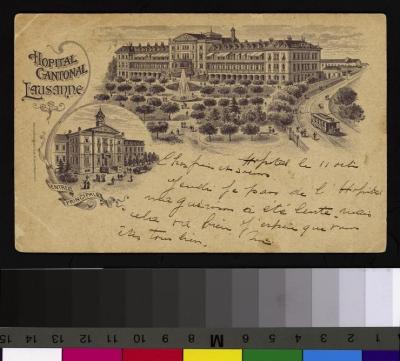 HOPITAL
CANTONAL
LAUSANNE
ENTRÉE
PRINCIPALE
Hopital le 11 oct
Jeudi je pars de l'Hopital
ma guérison a été lente mais
cela va bien j'espère que vous
êtes tous bien.
15 14 13 12 11 10 9 8 M 6 5 4 3 2 1